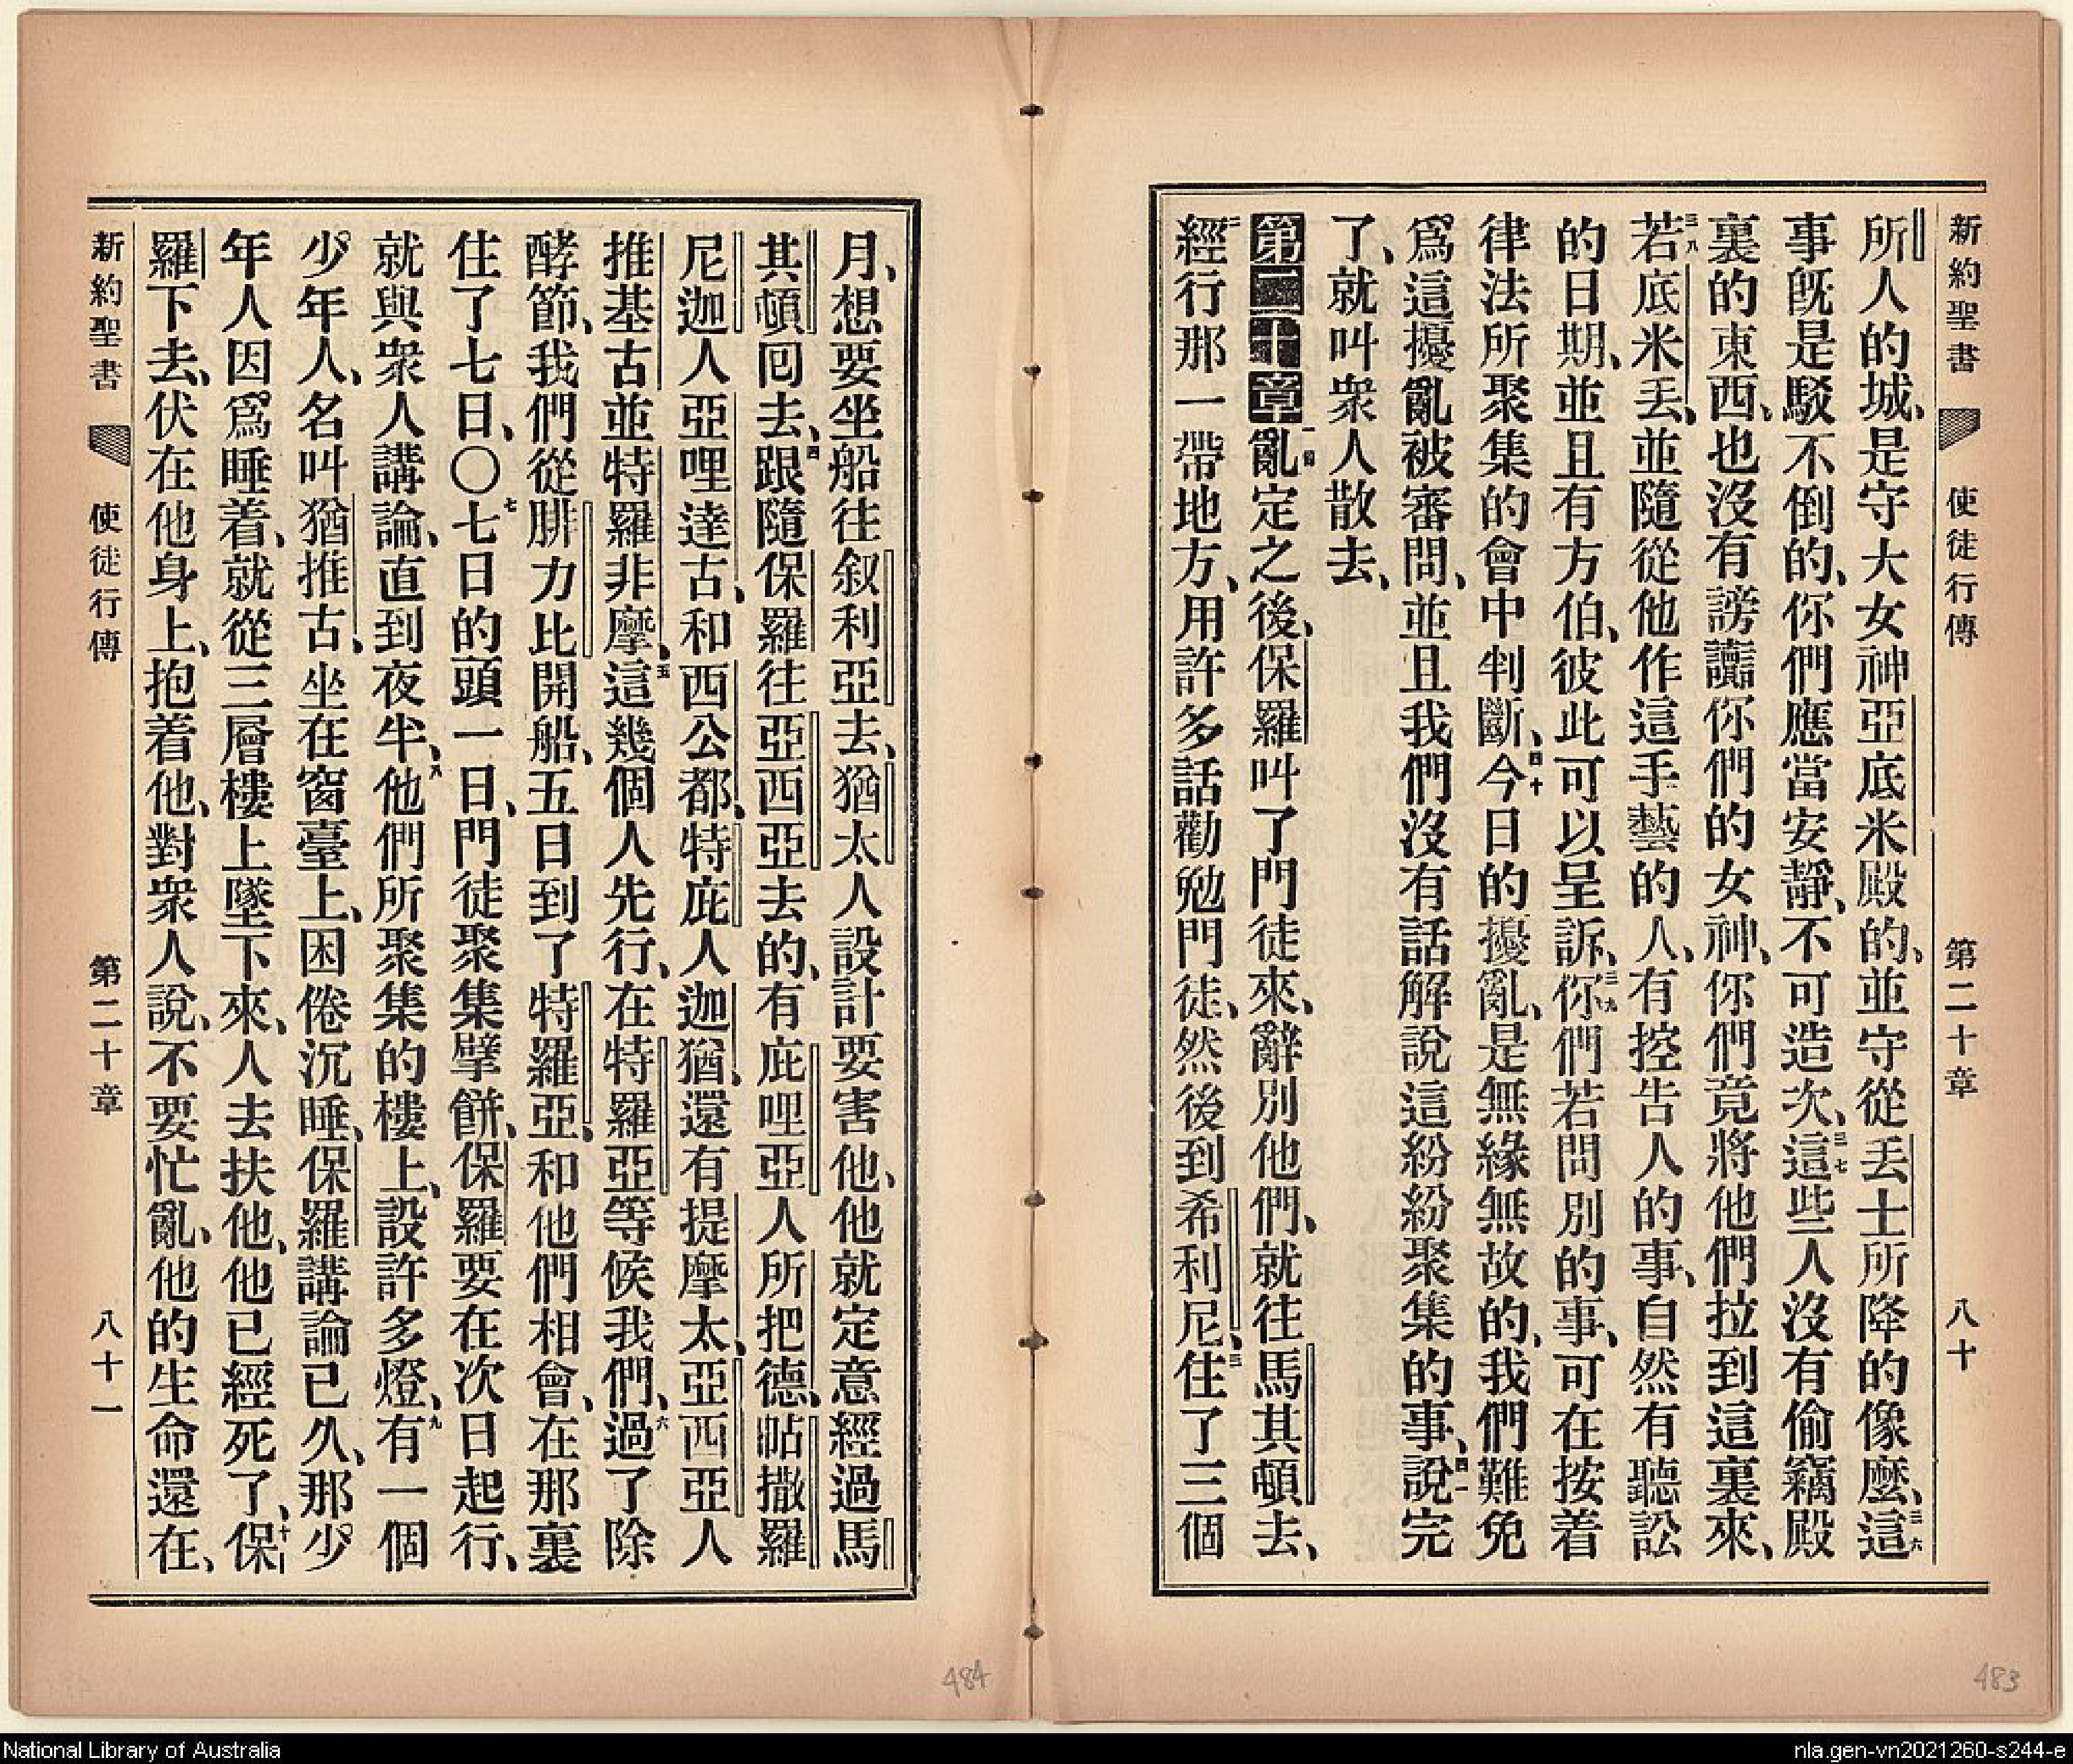 新約聖書 使徒行傳 第二十章 八十
所人的城、是守大女神亞底米殿的、並守從丟士所降的像麼、三六這
事旣是駁不倒的、你們應當安靜、不可造次、三七這些人沒有偷竊殿
裏的東西、也沒有謗讟你們的女神、你們竟將他們拉到這裏來、
三八若底米丟、並隨從他作這手藝的人、有控告人的事、自然有聽訟
的日期、並且有方伯、彼此可以呈訴、三九你們若問別的事、可在按着
律法所聚集的會中判斷、四十今日的擾亂、是無緣無故的、我們難免
爲這擾亂被審問、並且我們沒有話解說這紛紛聚集的事、四一說完
了、就叫衆人散去、
第二十章 一亂定之後、保羅叫了門徒來、辭別他們、就往馬其頓去、
二經行那一帶地方、用許多話勸勉門徒、然後到希利尼、三住了三個
月、想要坐船往叙利亞去、猶太人設計要害他、他就定意經過馬
其頓囘去、四跟隨保羅往亞西亞去的、有庇哩亞人所把德、帖撒羅
尼迦人亞哩達古、和西公都、特庇人迦猶、還有提摩太、亞西亞人
推基古並特羅非摩、五這幾個人先行、在特羅亞等候我們、六過了除
酵節、我們從腓力比開船、五日到了特羅亞、和他們相會、在那裏
住了七日、〇七七日的頭一日、門徒聚集擘餅、保羅要在次日起行、
就與衆人講論、直到夜半、八他們所聚集的樓上、設許多燈、九有一個
少年人、名叫猶推古、坐在窗臺上、困倦沉睡、保羅講論已久、那少
年人因爲睡着、就從三層樓上墜下來、人去扶他、他已經死了、十保
羅下去、伏在他身上、抱着他、對衆人說、不要忙亂、他的生命還在、
新約聖書 使徒行傳 第二十章 八十一
484
483
National Library of Australia
nla.gen-vn2021260-s244-e